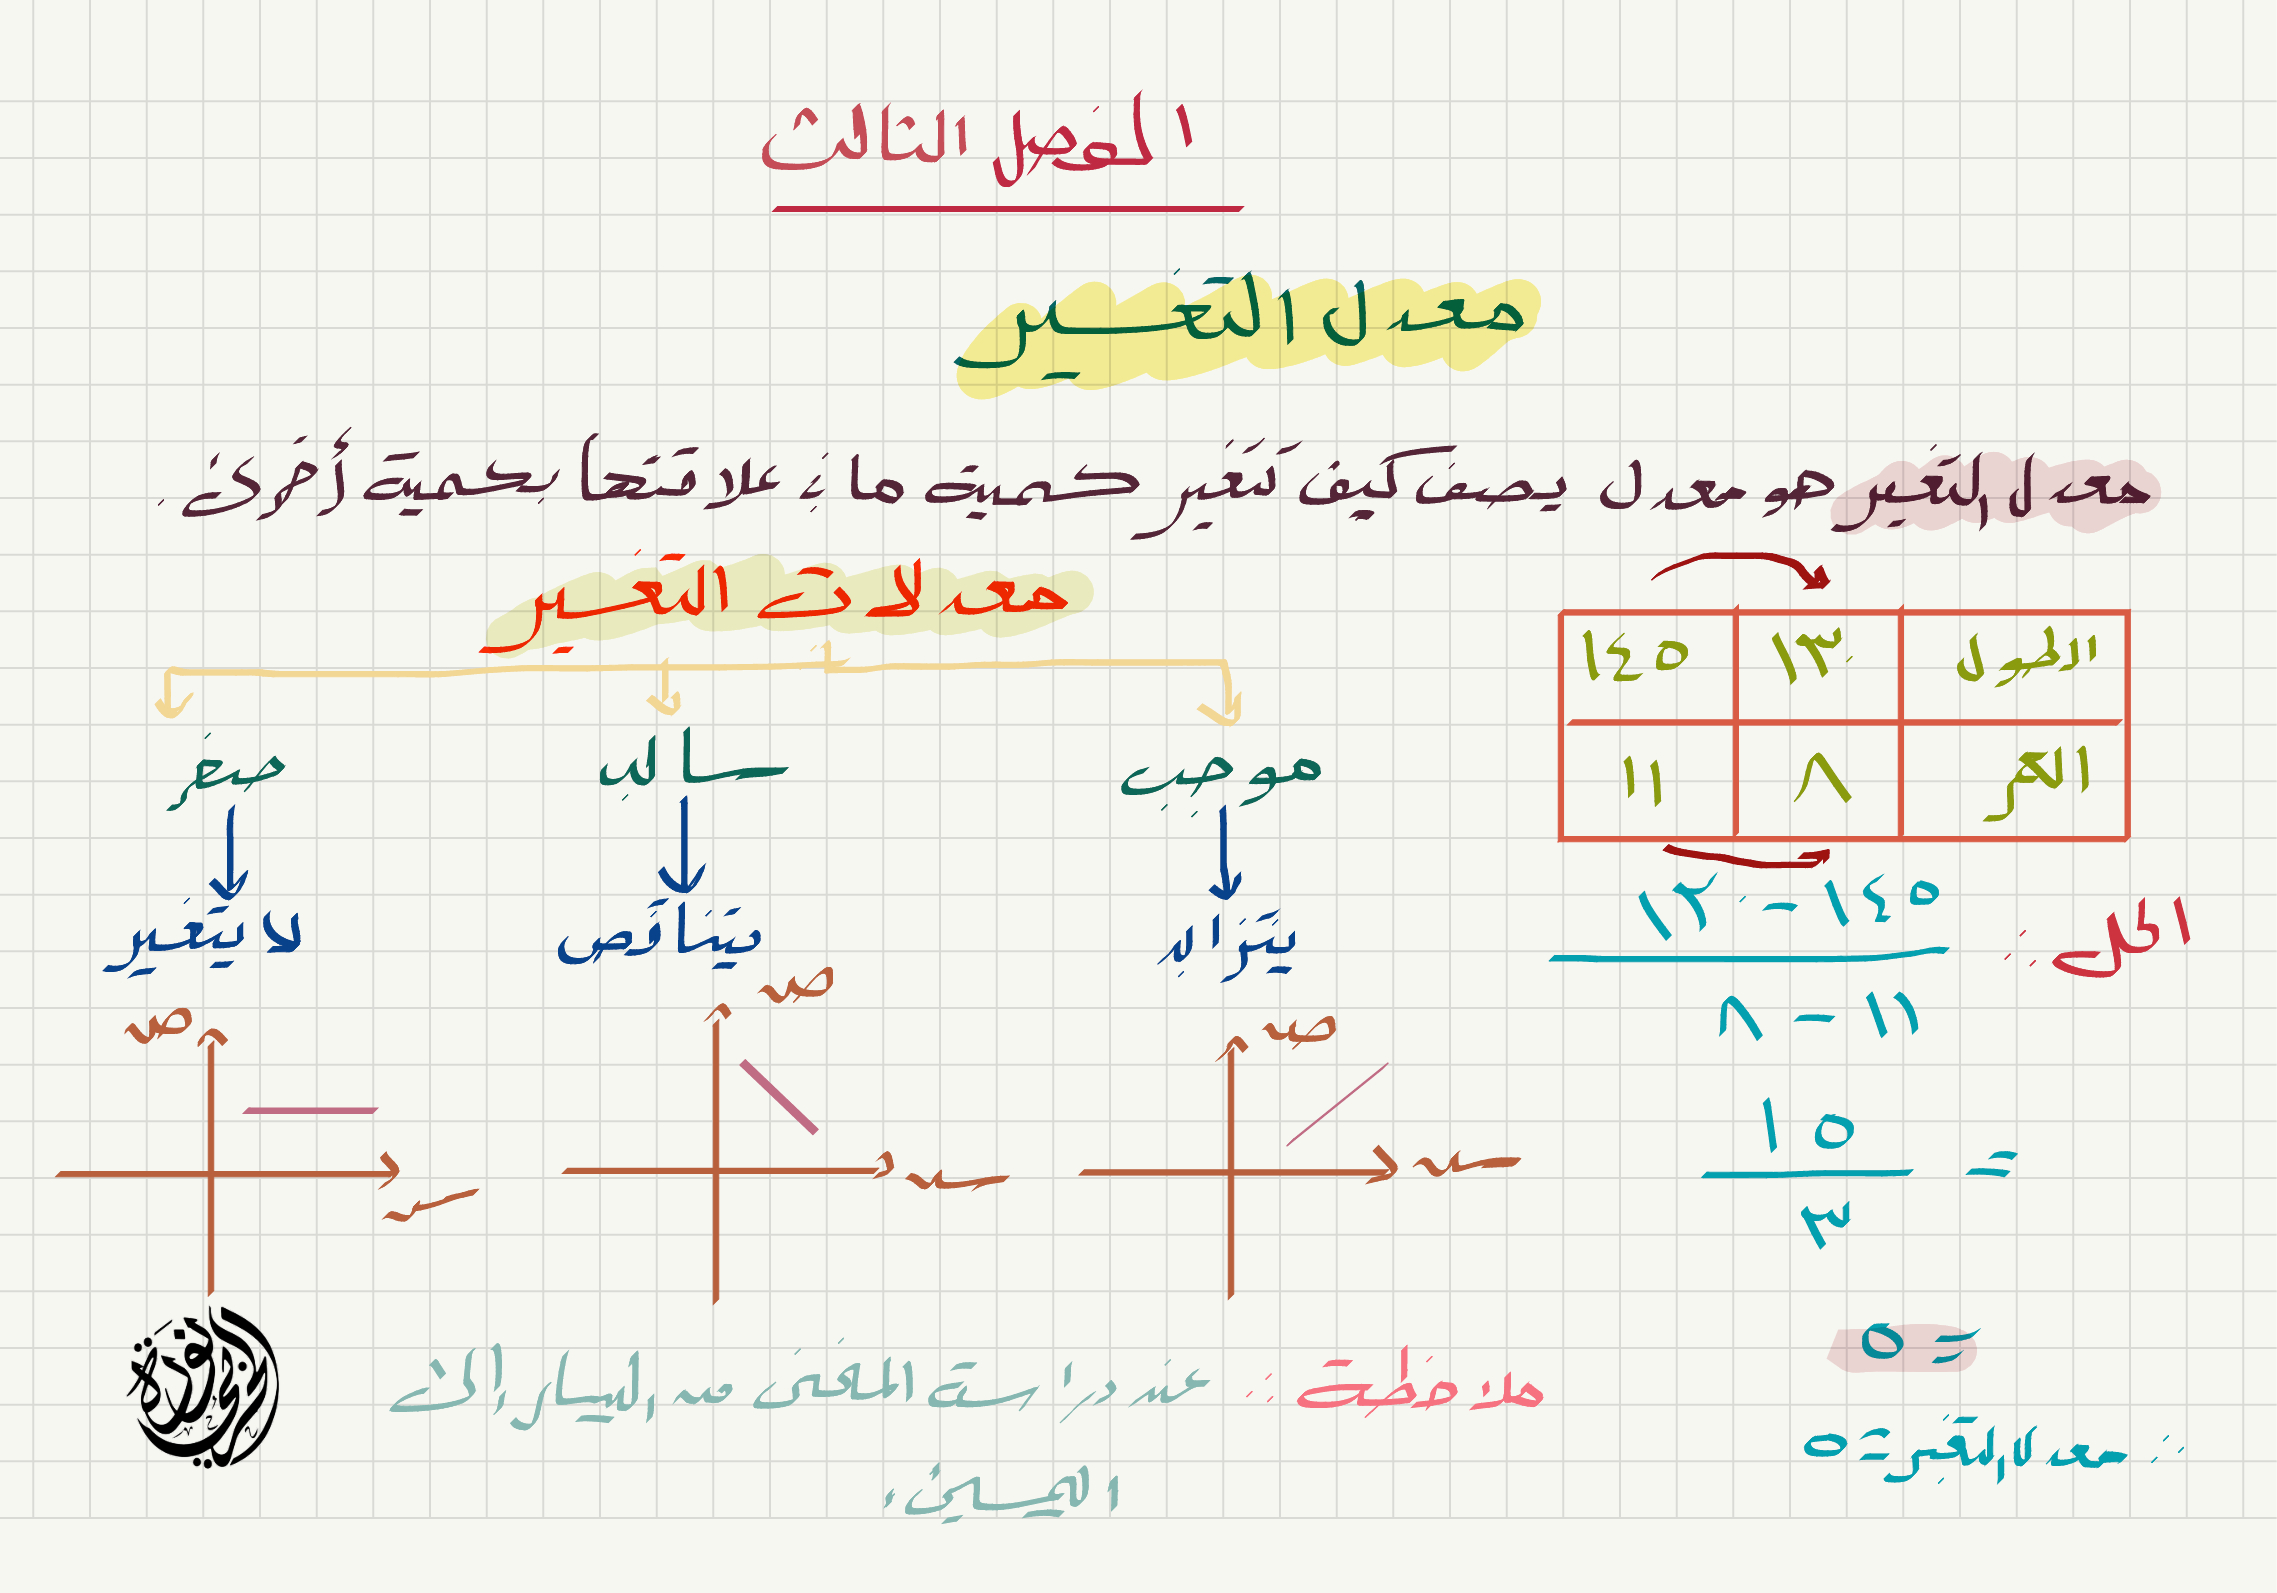 الفصل الثالث
معدل التغير
معدل التغير هو معدل يصف كيف تتغير كمية ما في علاقتها بكمية أخرى .
معدلات التغير
الطول ١٣٠ ١٤٥
العمر ٨ ١١
موجب
سالب
صفر
يتزايد
يتناقص
لا يتغير
ص
س
ص
س
ص
س
الحل :
١٤٥ - ١٣٠
١١ - ٨
= ١٥
٣
= ٥
∴ معدل التغير = ٥
ملاحظة : عند دراسة المنحنى من اليسار إلى
اليمين .